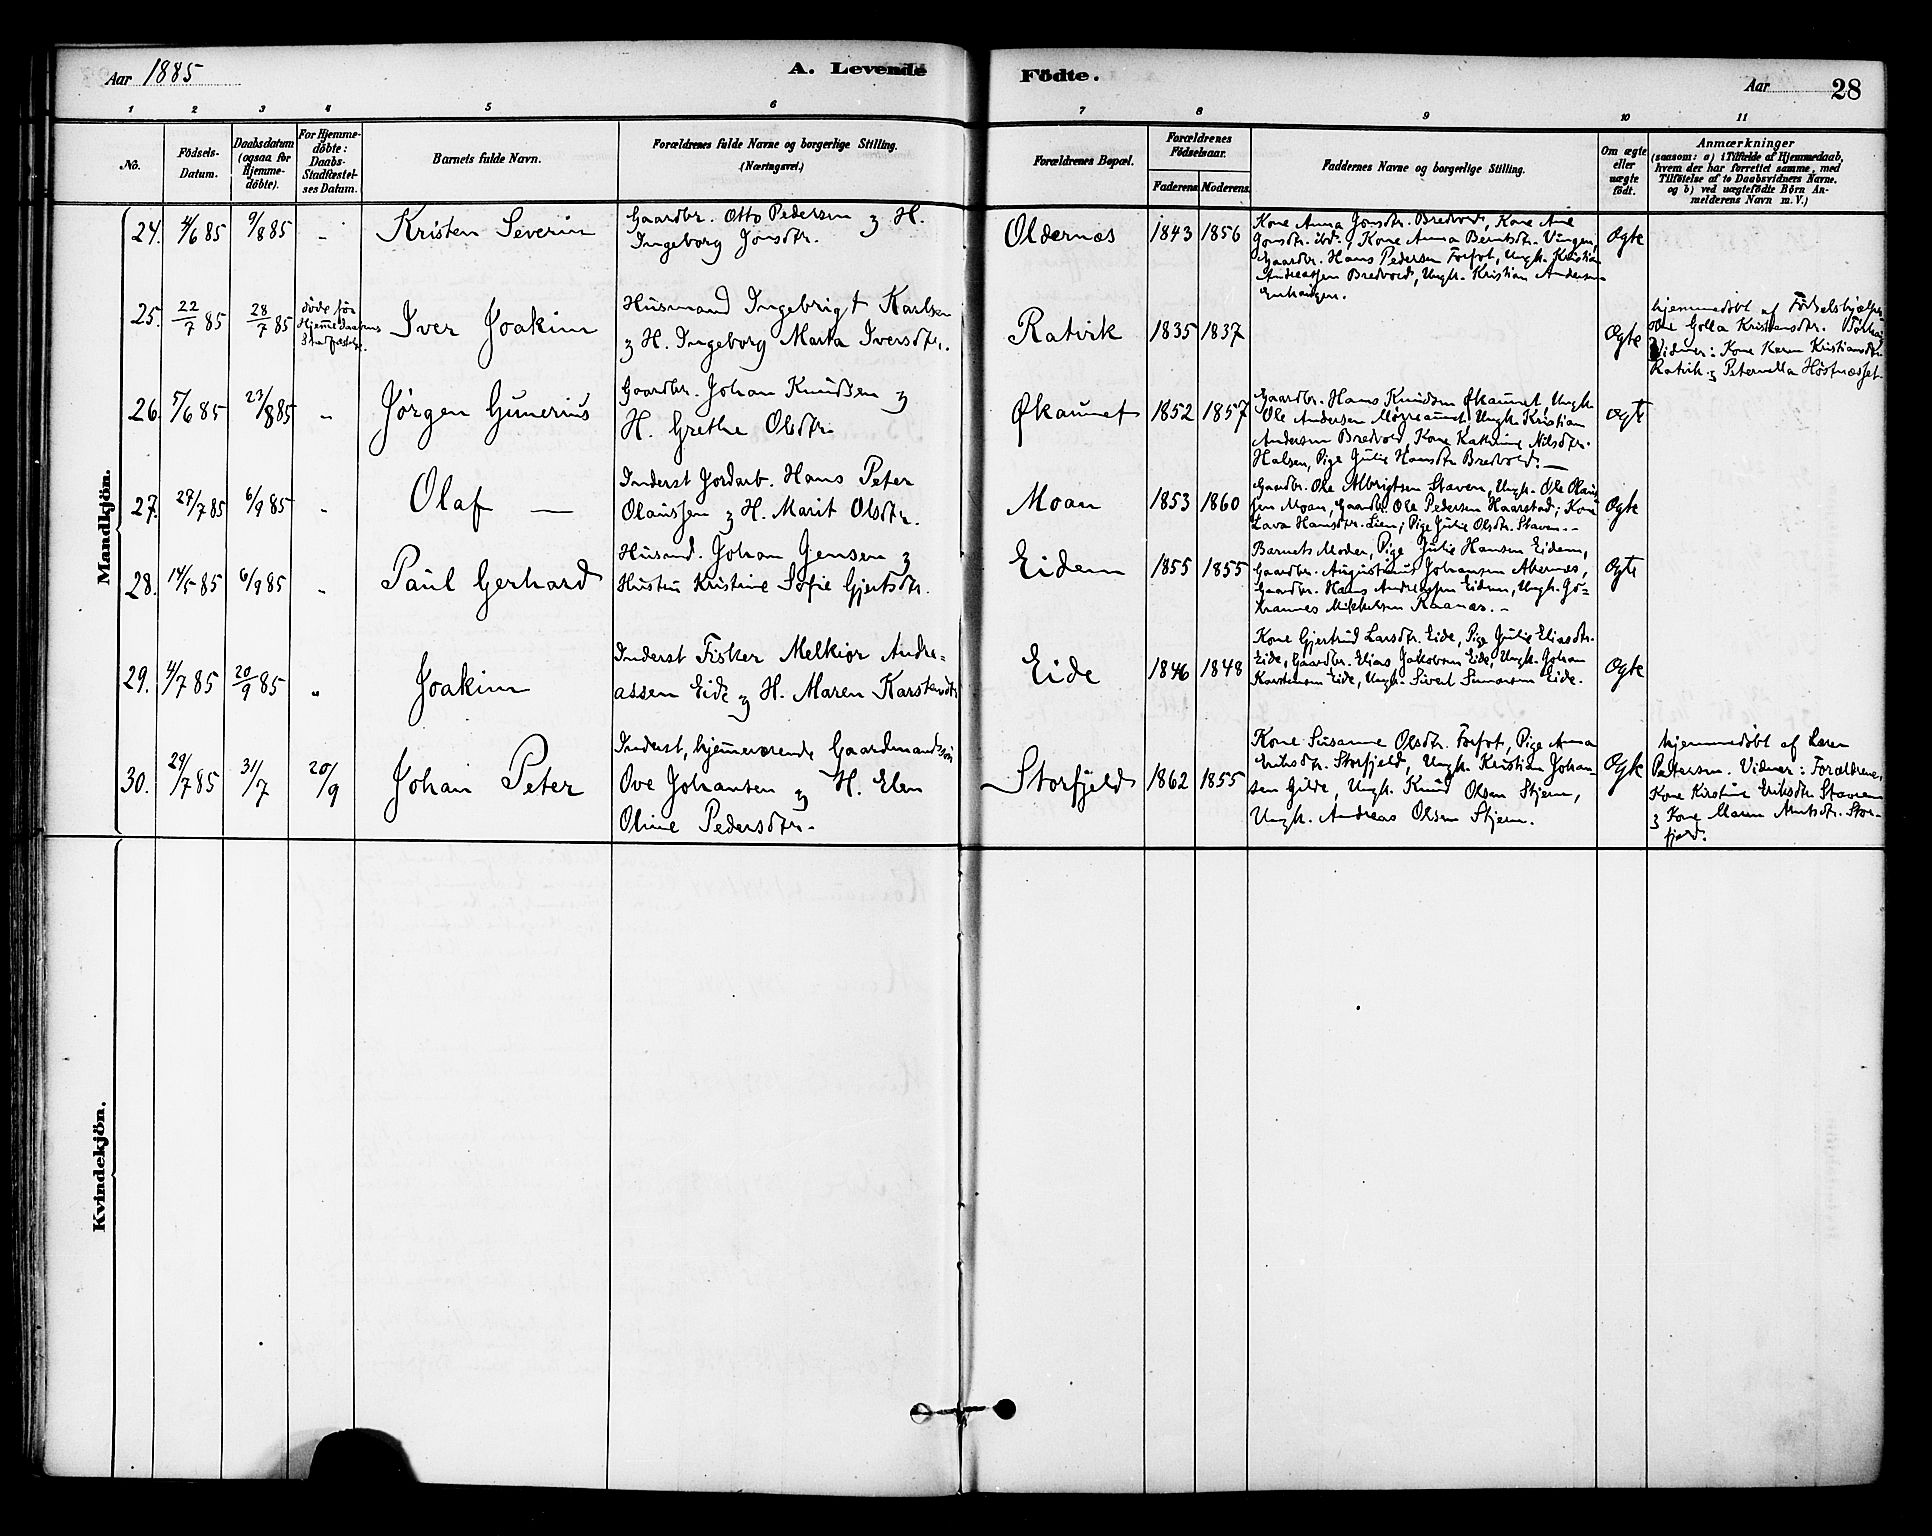 Aar 1885
A. Levende
Födte.
Aar
28
1 2 3 4 5 6 7 8 9 10 11
No.
Födsels-
Datum.
Daabsdatum
(ogsaa for
Hjemme-
döbte).
For Hjemme-
döbte:
Daabs-
Stadfæstel-
ses Datum.
Barnets fulde Navn.
Forældrenes fulde Navne og borgerlige Stilling.
(Næringsvei.)
Forældrenes Bopæl.
Forældrenes
Födselsaar.
Faderens.
Moderens.
Faddernes Navne og borgerlige Stilling.
Om ægte
eller
uægte
födt.
Anmærkninger
(saasom: a) i Tilfælde af Hjemmedaab,
hvem der har forrettet samme, med
Tilföielse af to Daabsvidners Navne.
og b) ved uægtefödte Börn An-
melderens Navn m. V.)
Mandkjön.
24. 4/6 85 9/8 85 "
Kristen Severin
Gaardbr. Otto Pedersen og H.
Ingeborg Jonsdtr.
Oldernes 1843 1856
Kone Anna Jonsdtr. Bredvold, Kone Ane
Jonsdtr. ibd., Kone Anna Berntsdtr. Vingen,
Gaardbr. Hans Pedersen Forfot, Ungk. Kristian
Andreassen Bredvold, Ungk. Kristian Andersen
Ægte
25. 22/7 85 28/7 85
døde før
Hjemmedaabens
Stadfæstelse.
Iver Joakim
Husmand Ingebrigt Karlsen
og H. Ingeborg Marta Iversdtr.
Ratvik 1835 1837
Ægte
hjemmedöbt af Fødselshjælper-
ske Golla Kristensdtr.
Vidner: Kone Karen Kristiansdtr.
Ratvik og Peternella Höstnæsset.
26. 5/6 85 23/8 85 "
Jørgen Gunerius
Gaardbr. Johan Knudsen og
H. Grethe Olsdtr.
Økaunet 1852 1857
Gaardbr. Hans Knudsen Økaunet, Ungk.
Ole Andersen Møgreaunet, Ungk. Kristian
Andersen Bredvold, Kone Kathrine Nilsdtr.
Halsen, Pige Julie Hansdtr. Bredvold. —
Ægte
27. 27/7 85 6/9 85 "
Olaf —
Inderst Jordarb. Hans Peter
Olaussen og H. Marit Olsdtr.
Moan 1853 1860
Gaardbr. Ole Albrigtsen Staven, Ungk. Ole Olaus-
sen Moan, Gaardbr. Ole Pedersen Haarstad; Kone
Lava Hansdtr. Lien; Pige Julie Olsdtr. Staven. -
Ægte
28. 14/5 85 6/9 85 "
Paul Gerhard
Husmd. Johan Jensen og
Hustru Kristine Sofie Gjertsdtr.
Eidem 1855 1855
Barnets Moder, Pige Julie Hansen Eidem,
Gaardbr. Augustinus Johansen Abernes,
Gaardbr. Hans Andreassen Eidem, Ungk. Jo-
hannes Mikkelsen Raanes. -
Ægte
29. 4/7 85 20/9 85 "
Joakim
Inderst Fisker Melkior Andre-
assen Eide og H. Maren Karstendtr
Eide 1846 1848
Kone Gjertrud Larsdtr. Eide, Pige Julie Eliasdtr.
Eide, Gaardbr. Elias Jakobsen Eide, Ungk. Johan
Karstensen Eide, Ungk. Sivert Simonsen Eide.
Ægte
30. 29/7 85 31/7 20/9
Johan Peter
Inderst, hjemmeværende Gaardmandssön
Ove Johansen og H. Elen
Oline Pedersdtr.
Storfjeld 1862 1855
Kone Susanne Olsdtr. Forfot, Pige Anna
Eriksdtr. Storfjeld, Ungk. Kristian Johan-
sen Gilde, Ungk. Knud Olsen Stjern,
Ungk. Andreas Olsen Stjern.
Ægte
hjemmedöbt af Lærer
Pettersen. Vidner: Forældrene,
Kone Kirstine Eriksdtr. Stavren
og Kone Maren Arntsdtr. Stor-
fjeld.
Kvindekjön.